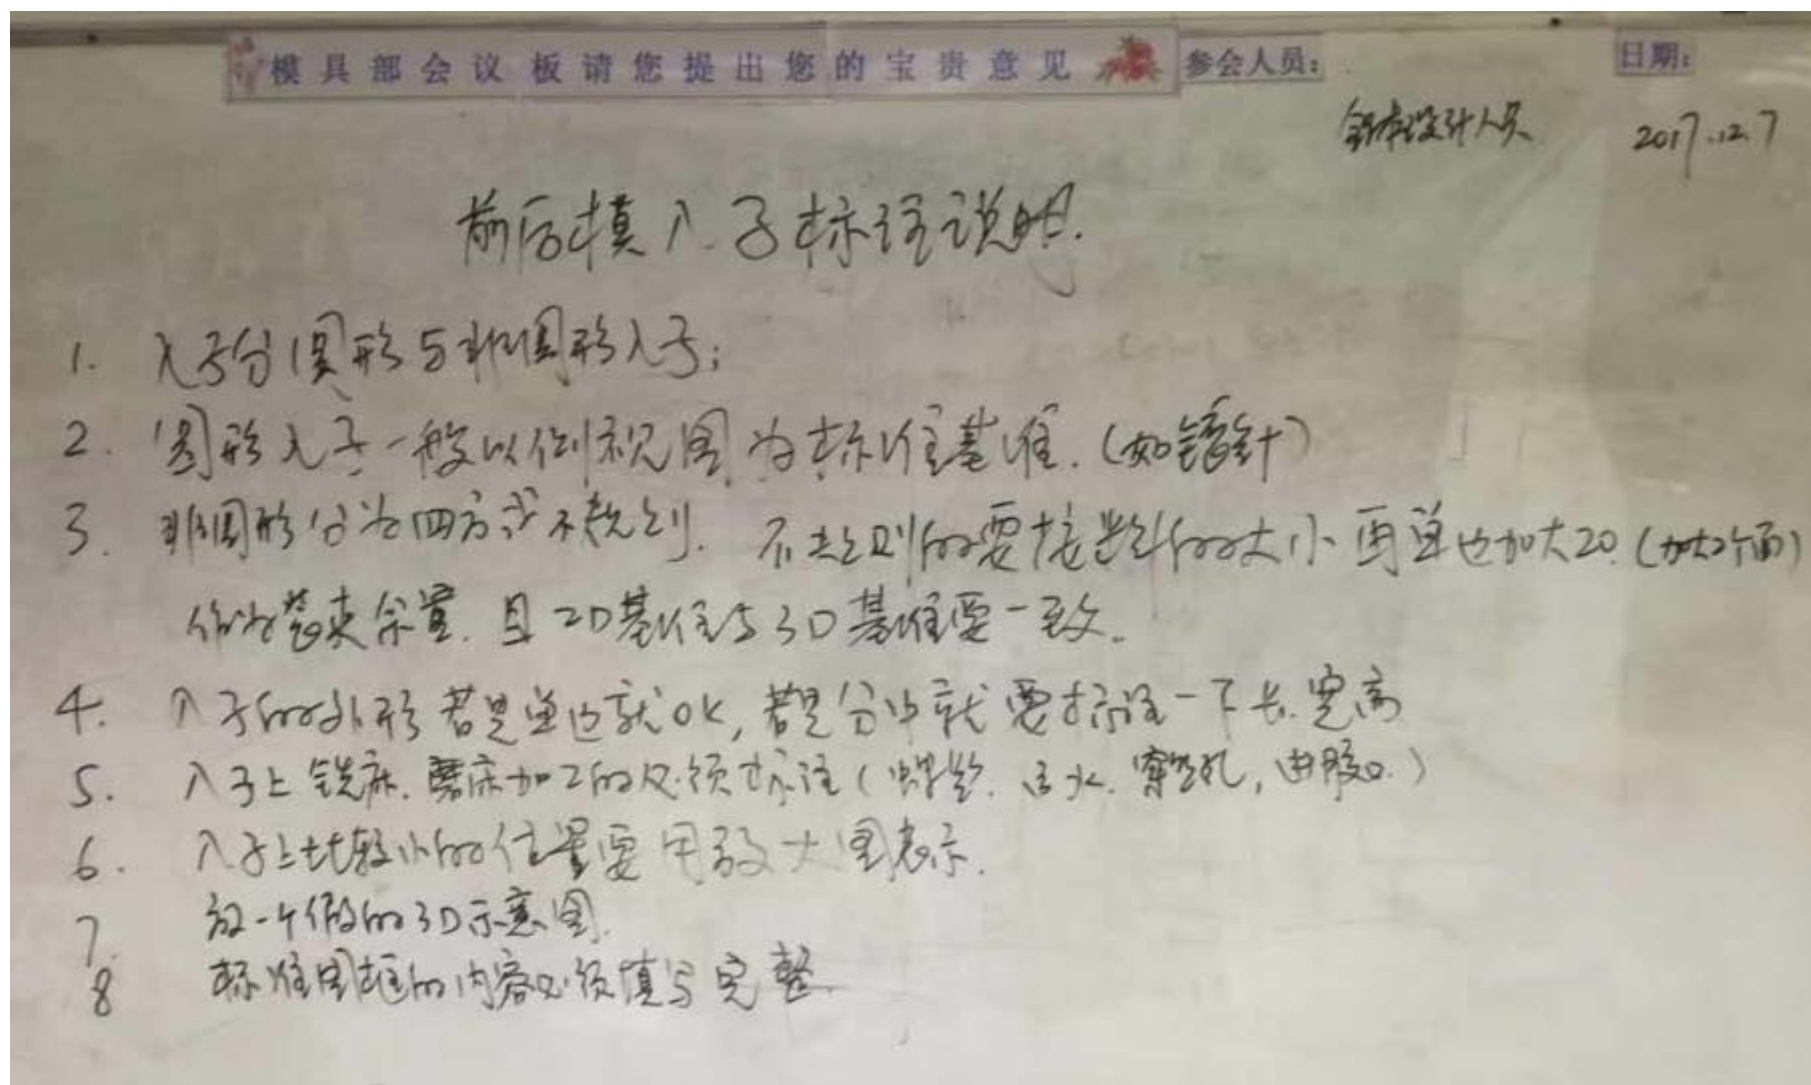 模具部会议板请您提出您的宝贵意见 参会人员： 日期：
全体设计人员 2017.12.7
前后模入子标注说明.
1. 入子分圆形与非圆形入子；
2. 圆形入子一般以侧视图为标准基准.（如镶针）
3. 非圆形分为四方或不规则. 不规则的要按整的大小再单边加大20.（加大2个面）
作为装夹余量. 且2D基准与3D基准要一致.
4. 入子的外形若是单边就OK, 若是分中就要标注一下长.宽高
5. 入子上铣床.磨床加工的必须标注（螺丝.运水.穿丝孔, 进胶口.）
6. 入子上比较小的位置要用放大图表示.
7. 放一个假的3D示意图.
8 标准图框的内容必须填写完整